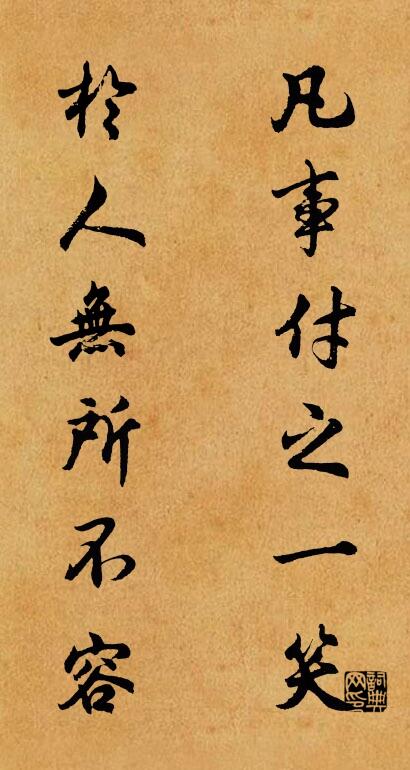 凡事付之一笑
於人無所不容
詞典網印